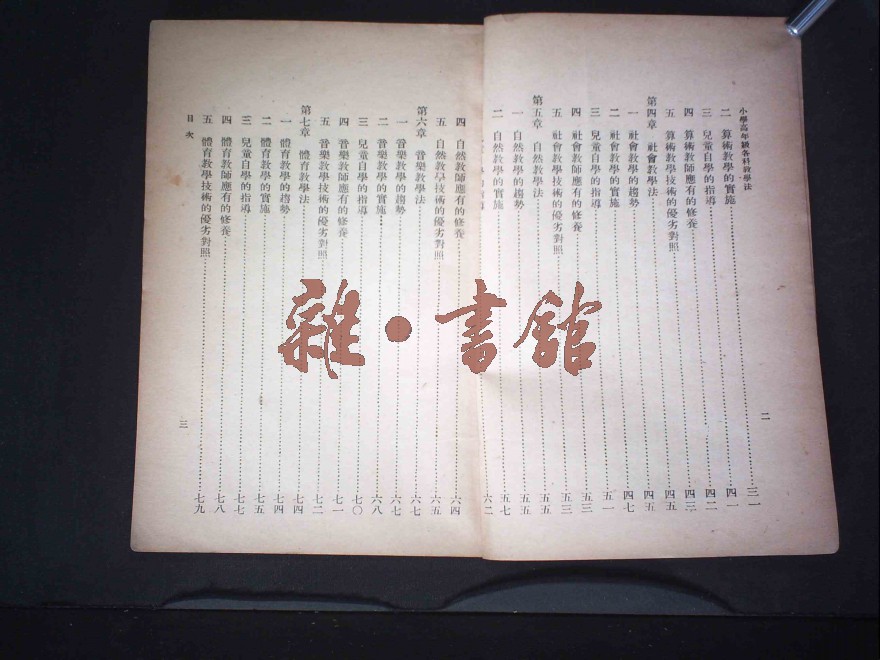 小學高年級各科教學法
二 算術教學的實施……三一
三 兒童自學的指導……四一
四 算術教師應有的修養……四二
五 算術教學技術的優劣對照……四三
第四章 社會教學法……四五
一 社會教學的趨勢……四五
二 社會教學的實施……四七
三 兒童自學的指導……五一
四 社會教師應有的修養……五三
五 社會教學技術的優劣對照……五三
第五章 自然教學法……五五
一 自然教學的趨勢……五五
二 自然教學的實施……五七
六二
二
四 自然教師應有的修養……六四
五 自然教學技術的優劣對照……六五
第六章 音樂教學法……六七
一 音樂教學的趨勢……六七
二 音樂教學的實施……六八
三 兒童自學的指導……七〇
四 音樂教師應有的修養……七一
五 音樂教學技術的優劣對照……七二
第七章 體育教學法……七四
一 體育教學的趨勢……七四
二 體育教學的實施……七五
三 兒童自學的指導……七七
四 體育教師應有的修養……七八
五 體育教學技術的優劣對照……七九
目次
三
雜·書館